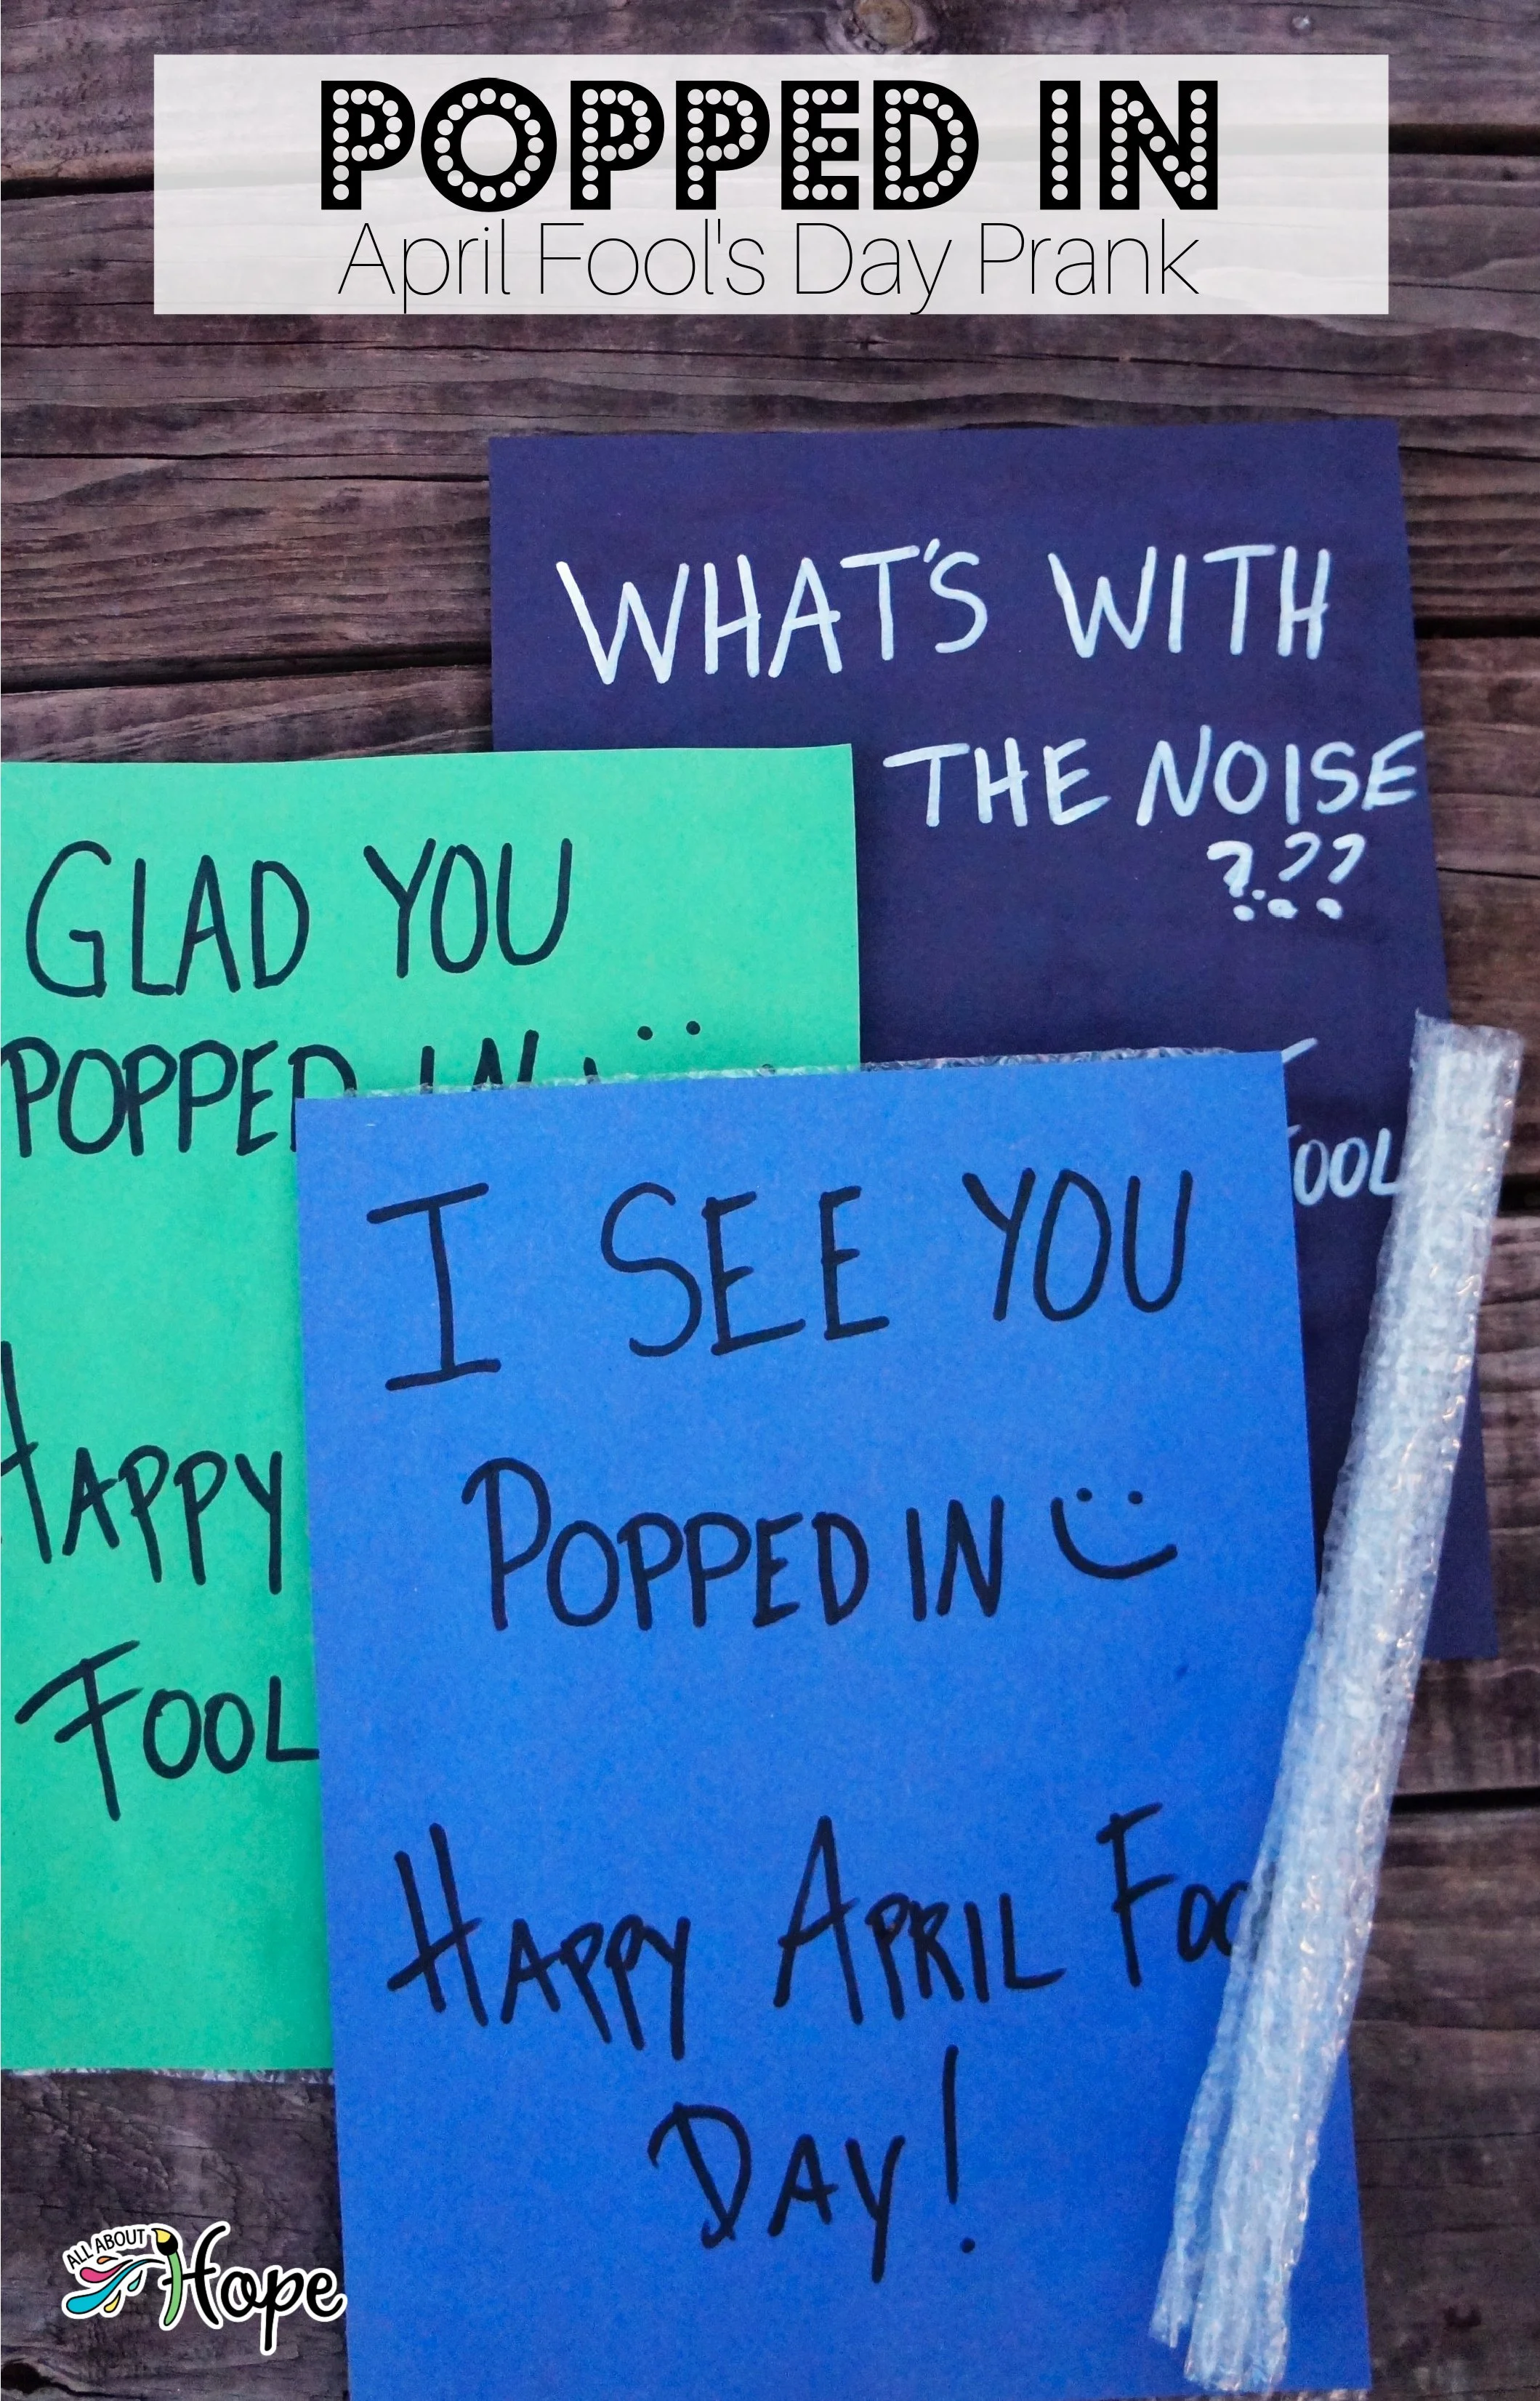 POPPED IN
April Fool's Day Prank
WHAT'S WITH
THE NOISE
???
GLAD YOU
POPPED IN
HAPPY
FOOL
I SEE YOU
POPPED IN
HAPPY APRIL FOO
DAY!
OOL
ALL ABOUT
Hope